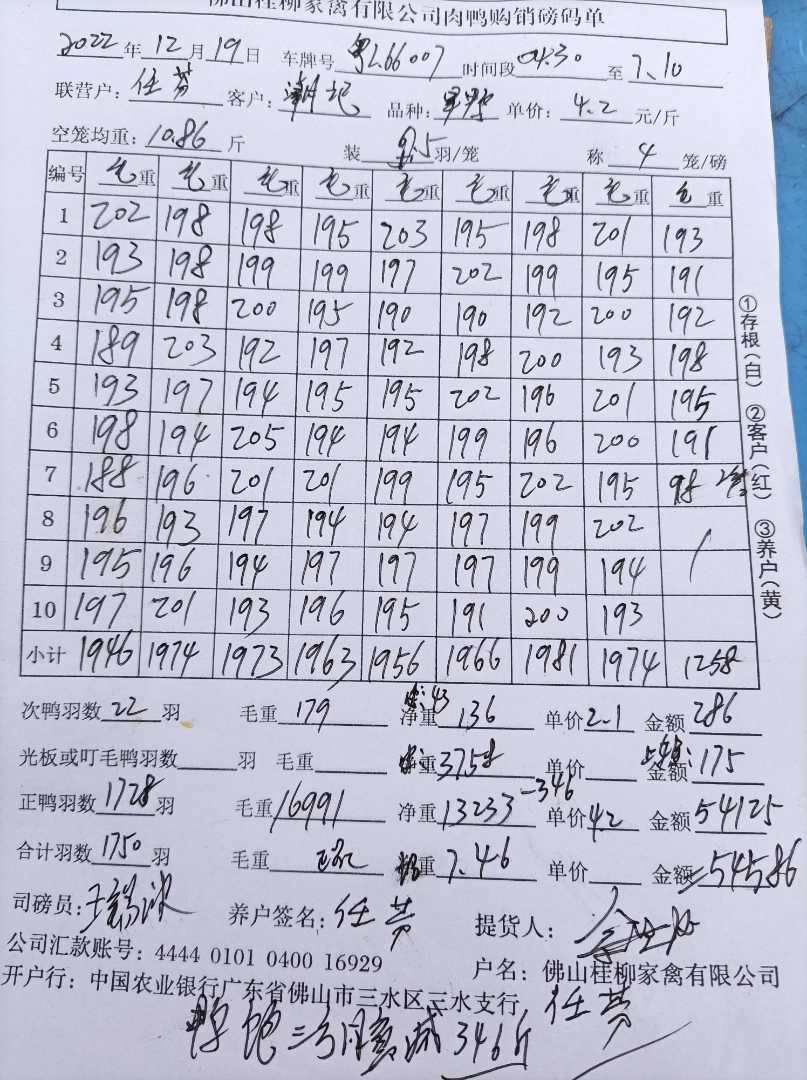 佛山桂柳家禽有限公司肉鸭购销磅码单
2022年12月19日 车牌号 粤L66007 时间段 04.30 至 7.10
联营户：任芬 客户：潮记 品种： 单价：4.2 元/斤
空笼均重：10.86 斤 装 8.5 羽/笼 称 4 笼/磅
编号 毛重 毛重 毛重 毛重 毛重 毛重 毛重 毛重 毛重
1 202 198 198 195 203 195 198 201 193
2 193 198 199 199 197 202 199 195 191
3 195 198 200 195 190 190 192 200 192
4 189 203 192 197 192 198 200 193 198
5 193 197 194 195 195 202 196 201 195
6 198 194 205 194 194 199 196 200 191
7 188 196 201 201 199 195 202 195 98 2笼
8 196 193 197 194 194 197 199 202
9 195 196 194 197 197 197 199 194
10 197 201 193 196 195 191 200 193
小计 1946 1974 1973 1963 1956 1966 1981 1974 1258
①存根（白） ②客户（红） ③养户（黄）
次鸭羽数 22 羽 毛重 179 净重 136 单价 2.1 金额 286
43
光板或叮毛鸭羽数 羽 毛重 净重 3758 单价 金额 175
正鸭羽数 1728 羽 毛重 16991 净重 13233 -346 单价 4.2 金额 54125
合计羽数 1750 羽 毛重 重 7.46 单价 金额 54586
司磅员： 养户签名：任芬 提货人：
公司汇款账号：4444 0101 0400 16929 户名：佛山桂柳家禽有限公司
开户行：中国农业银行广东省佛山市三水区三水支行 任芬
三方同意减346斤